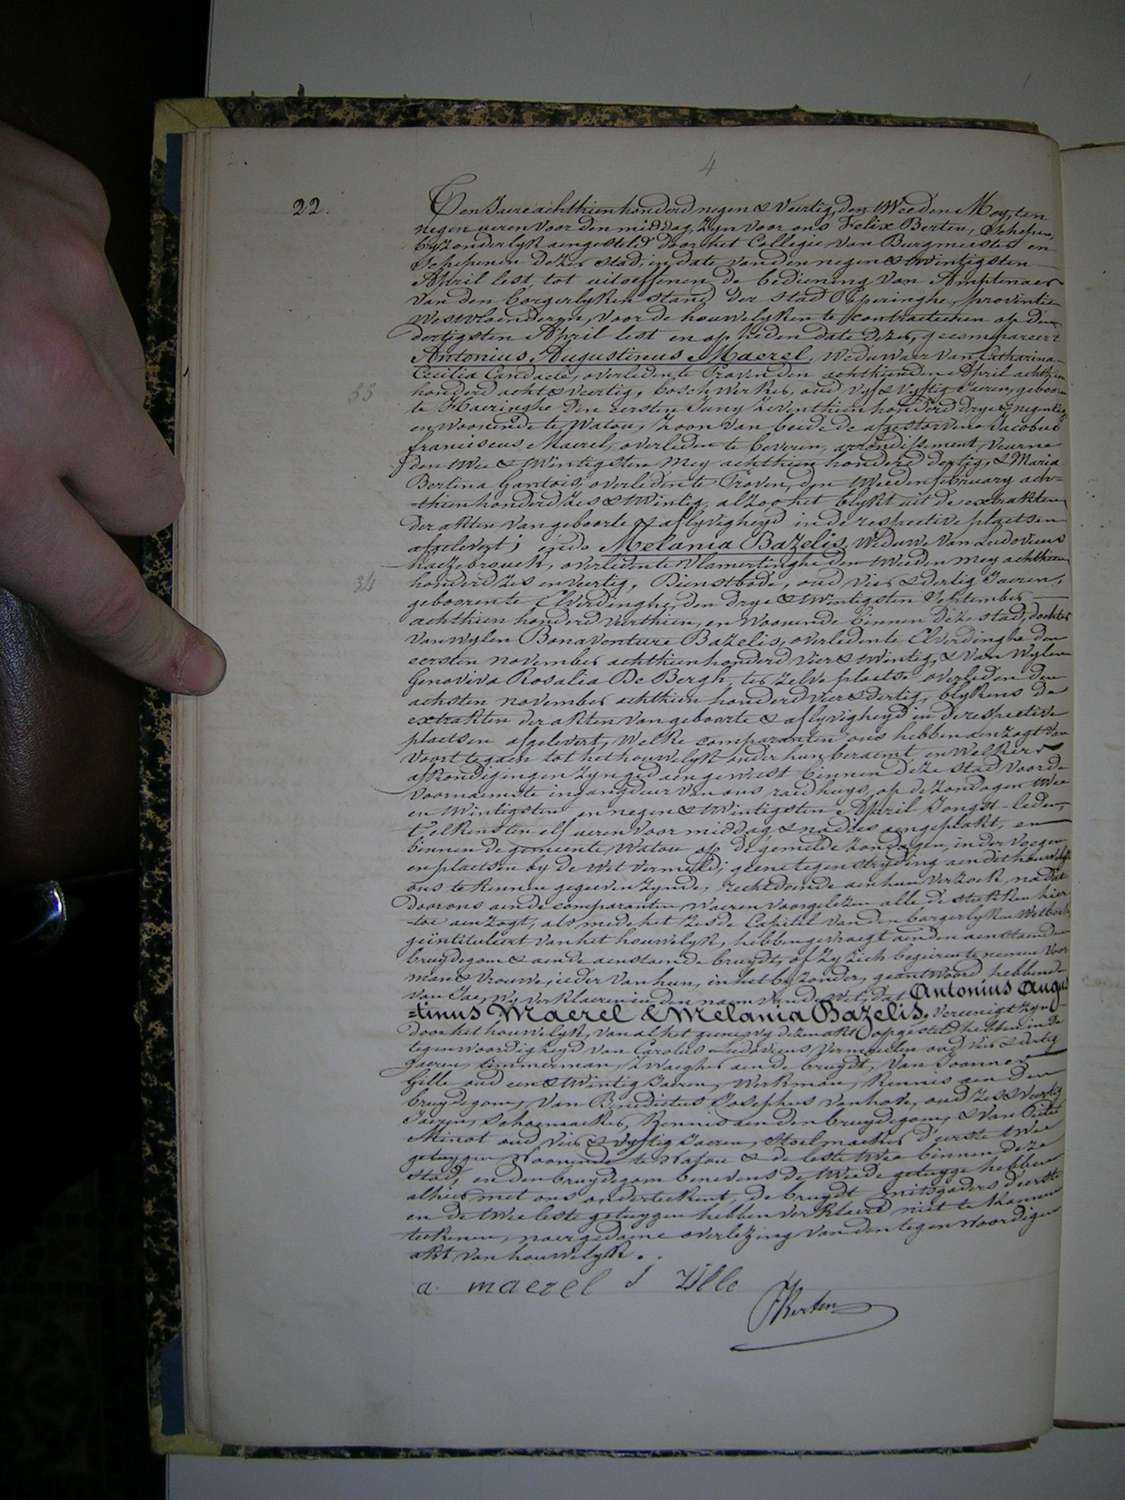 4
22.
Ten Jaere achthien honderd negen & Veertig, den tweeden Mey, ten
negen ueren voor den middag, zyn voor ons Felix Berten, Schepen,
byzonderlyk aengesteld door het Collegie van Burgmeester en
Schepenen dezer Stad, in date van den negen & twintigsten
April lest, tot uitoeffenen de bediening van Amptenaer
van den borgerlyken stand der Stad Poperinghe, provintie
Westvlaenderen, voor de houwelyken te kontracteeren op den
dertigsten April lest en op heden date dezer, gecompareert
Antonius Augustinus Maerel, Weduwaer van Catharina
Cecilia Candaele, overleden te Proven den achthienden April achthien
33
honderd acht & veertig, bosch werker, oud vyf & vyftig Jaeren, geboren
te Haeringhe den eersten Juny zeventhien honderd drye & negentig
en woonende te Watou, zoon van beide de afgestorvene Jacobus
franciscus Maerel, overleden te beveren, arrondissement Veurne
den twee & twintigsten Mey achthien honderd dertig, & Maria
Bertina Gantois, overleden te Proven, den tweeden february ach-
-thien honderd zes & twintig, alzoo het blykt uit de extrakten
der akten van geboorte & aflyvigheyd in de respective plaetsen
afgelevert; ende Melania Bazelis, Weduwe van Ludovicus
Haezebrouck, overleden te Vlamertinghe den tweeden mey achthien
34
honderd zes en veertig, Dienstbode, oud vier & dertig Jaeren,
geboren te Elverdinghe, den drye & twintigsten September
achthien honderd veerthien, en woonende binnen deze stad, dochter
van wylen Bonaventure Bazelis, overleden te Elverdinghe den
eersten november achthien honderd vier & twintig, & van wylen
Genoviva Rosalia De Bergh, ter zelve plaetse overleden den
achsten november achthien honderd vier & dertig, blykens de
extrakten der akten van geboorte & aflyvigheyd in de respective
plaetsen afgelevert, welke comparanten ons hebben aenzogt van
voort te gaen tot het houwelyk onder hun beraemt en welkers
afkondigingen zyn gedaen geweest binnen deze stad voor de
voornaemste ingangdeur van ons raedhuys, op de zondagen twee
en twintigsten en negen & twintigsten April Jongst-leden,
t'elkens ten elf ueren voor middag & nadies aengeplakt, en
binnen de gemeente Watou op de gemelde zondagen, in der voegen
en plaetsen by de wet vermeld; geene tegenstryding aen dit houwelyk
ons te kennen gegeven zynde, rechtdoende aen hun verzoek, na dat
door ons aen de comparanten waeren voorgelezen alle de stukken hier
-toe aenzogt, als mede het zesde Capitel van den borgerlyken Wetboek,
geintituleert van het houwelyk, hebben gevraegt aen den aenstaenden
bruydegom & aen de aenstaende bruydt, of zy zich begeeren te nemen voor
man & vrouwe; ieder van hun, in het byzonder, geantwoord hebbende
van Jae, wy verklaeren in den naem van de Wet, dat Antonius Augus
=tinus Maerel & Melania Bazelis, vereenigt zyn
door het houwelyk, van al het geene wy deze akt opgesteld hebben in de
tegenwoordigheyd van Carolus Ludovicus Vermeulen oud vier & dertig
Jaeren, timmerman, zwaeger aen de bruydt, van Joannes
Zille oud een & twintig Jaeren, Werkman, kennis aen den
bruydegom, van Benedictus Josephus Vanhove, oud zes & veertig
Jaeren, Schoenmaeker, kennis aen den bruydegom, & van Pieter
Minot oud vier & vyftig Jaeren, Stoelmaeker, d'eerste twee
getuygen woonende te Watou & de leste twee binnen deze
stad, en den bruydegom benevens de tweede getuyge hebben
alhier met ons onderteekent, de bruydt mitsgaders d'eerste
en de twee leste getuygen hebben verklaerd niet te konnen
teekenen, naer gedaene overlezing van den tegenwoordigen
akt van houwelyk.
a. maerel J Zille
F Berten